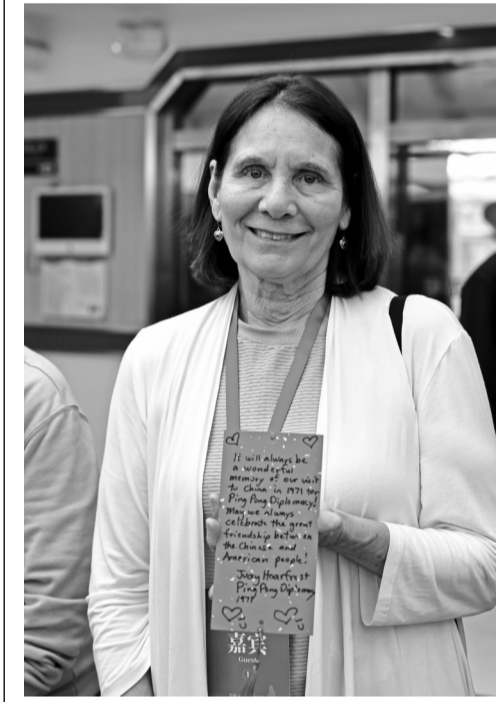 It will always be
a wonderful
memory of our visit
to China in 1971 for
Ping Pong Diplomacy!
May we always
celebrate the great
friendship between
the Chinese and
American people!
Judy Hoarfrost
Ping Pong Diplomacy
1971
嘉宾
Guest
1